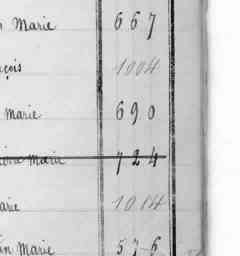 Marie 667
çois 1004
Marie 690
Marie 724
arie 1014
in Marie 576